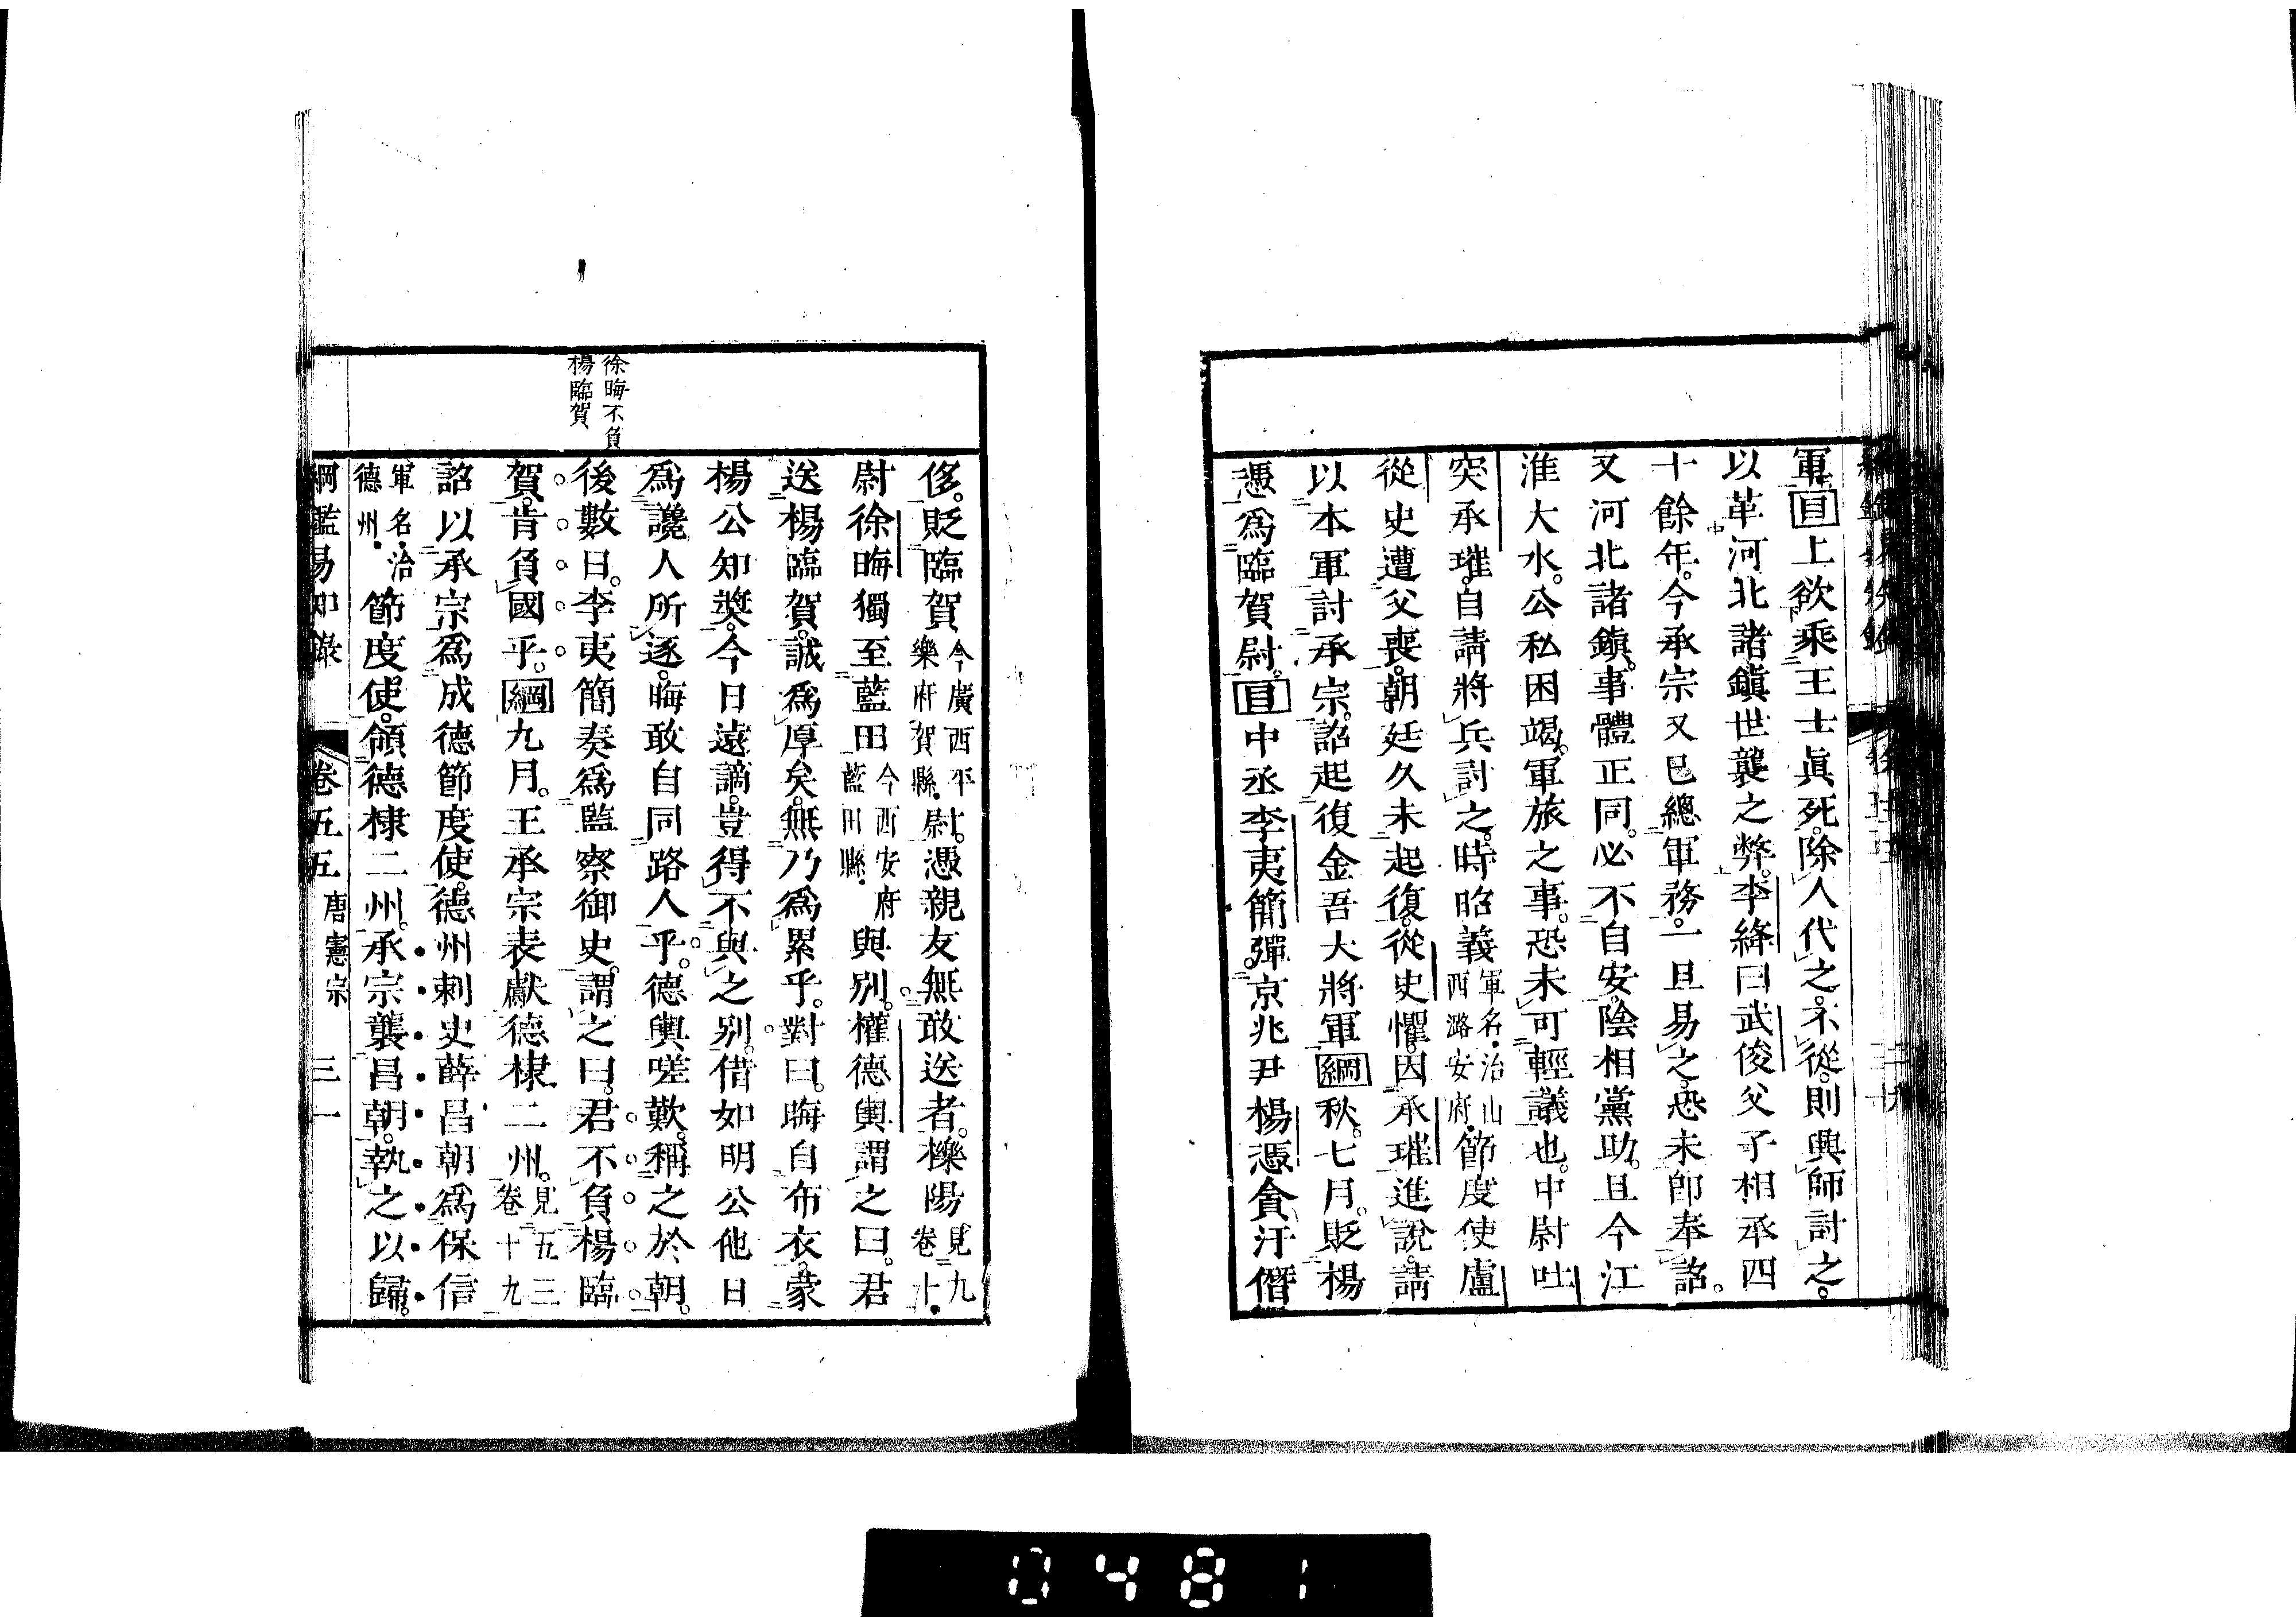 軍。目上欲乘王士眞死。除人代之。不從。則興師討之。
以革河北諸鎭世襲之弊。李絳曰武俊父子相承四
十餘年。今承宗又已總軍務。一旦易之。恐未卽奉詔。
又河北諸鎭。事體正同。必不自安。陰相黨助。且今江
淮大水。公私困竭。軍旅之事。恐未可輕議也。中尉吐
突承璀。自請將兵討之。時昭義軍名。治山西潞安府。節度使盧
從史遭父喪。朝廷久未起復。從史懼。因承璀進說。請
以本軍討承宗。詔起復金吾大將軍綱秋。七月。貶楊
憑爲臨賀尉。目中丞李夷簡彈。京兆尹楊憑貪汙僭
徐晦不負
楊臨賀
侈。貶臨賀今廣西平樂府賀縣。尉。憑親友無敢送者。櫟陽見九卷十。
尉徐晦獨至藍田今西安府藍田縣。與別。權德輿謂之曰。君
送楊臨賀。誠爲厚矣。無乃爲累乎。對曰。晦自布衣。蒙
楊公知奬。今日遠謫。豈得不與之別。借如明公他日
爲讒人所逐。晦敢自同路人乎。德輿嗟歎。稱之於朝。
後數日。李夷簡奏爲監察御史。謂之曰。君不負楊臨
賀。肯負國乎。綱九月。王承宗表獻德棣二州。見五三卷十九
詔以承宗爲成德節度使。德州刺史薛昌朝爲保信
軍名。治德州。節度使。領德棣二州。承宗襲昌朝。執之以歸。
綱鑑易知錄 卷五五 唐憲宗 三一
0481